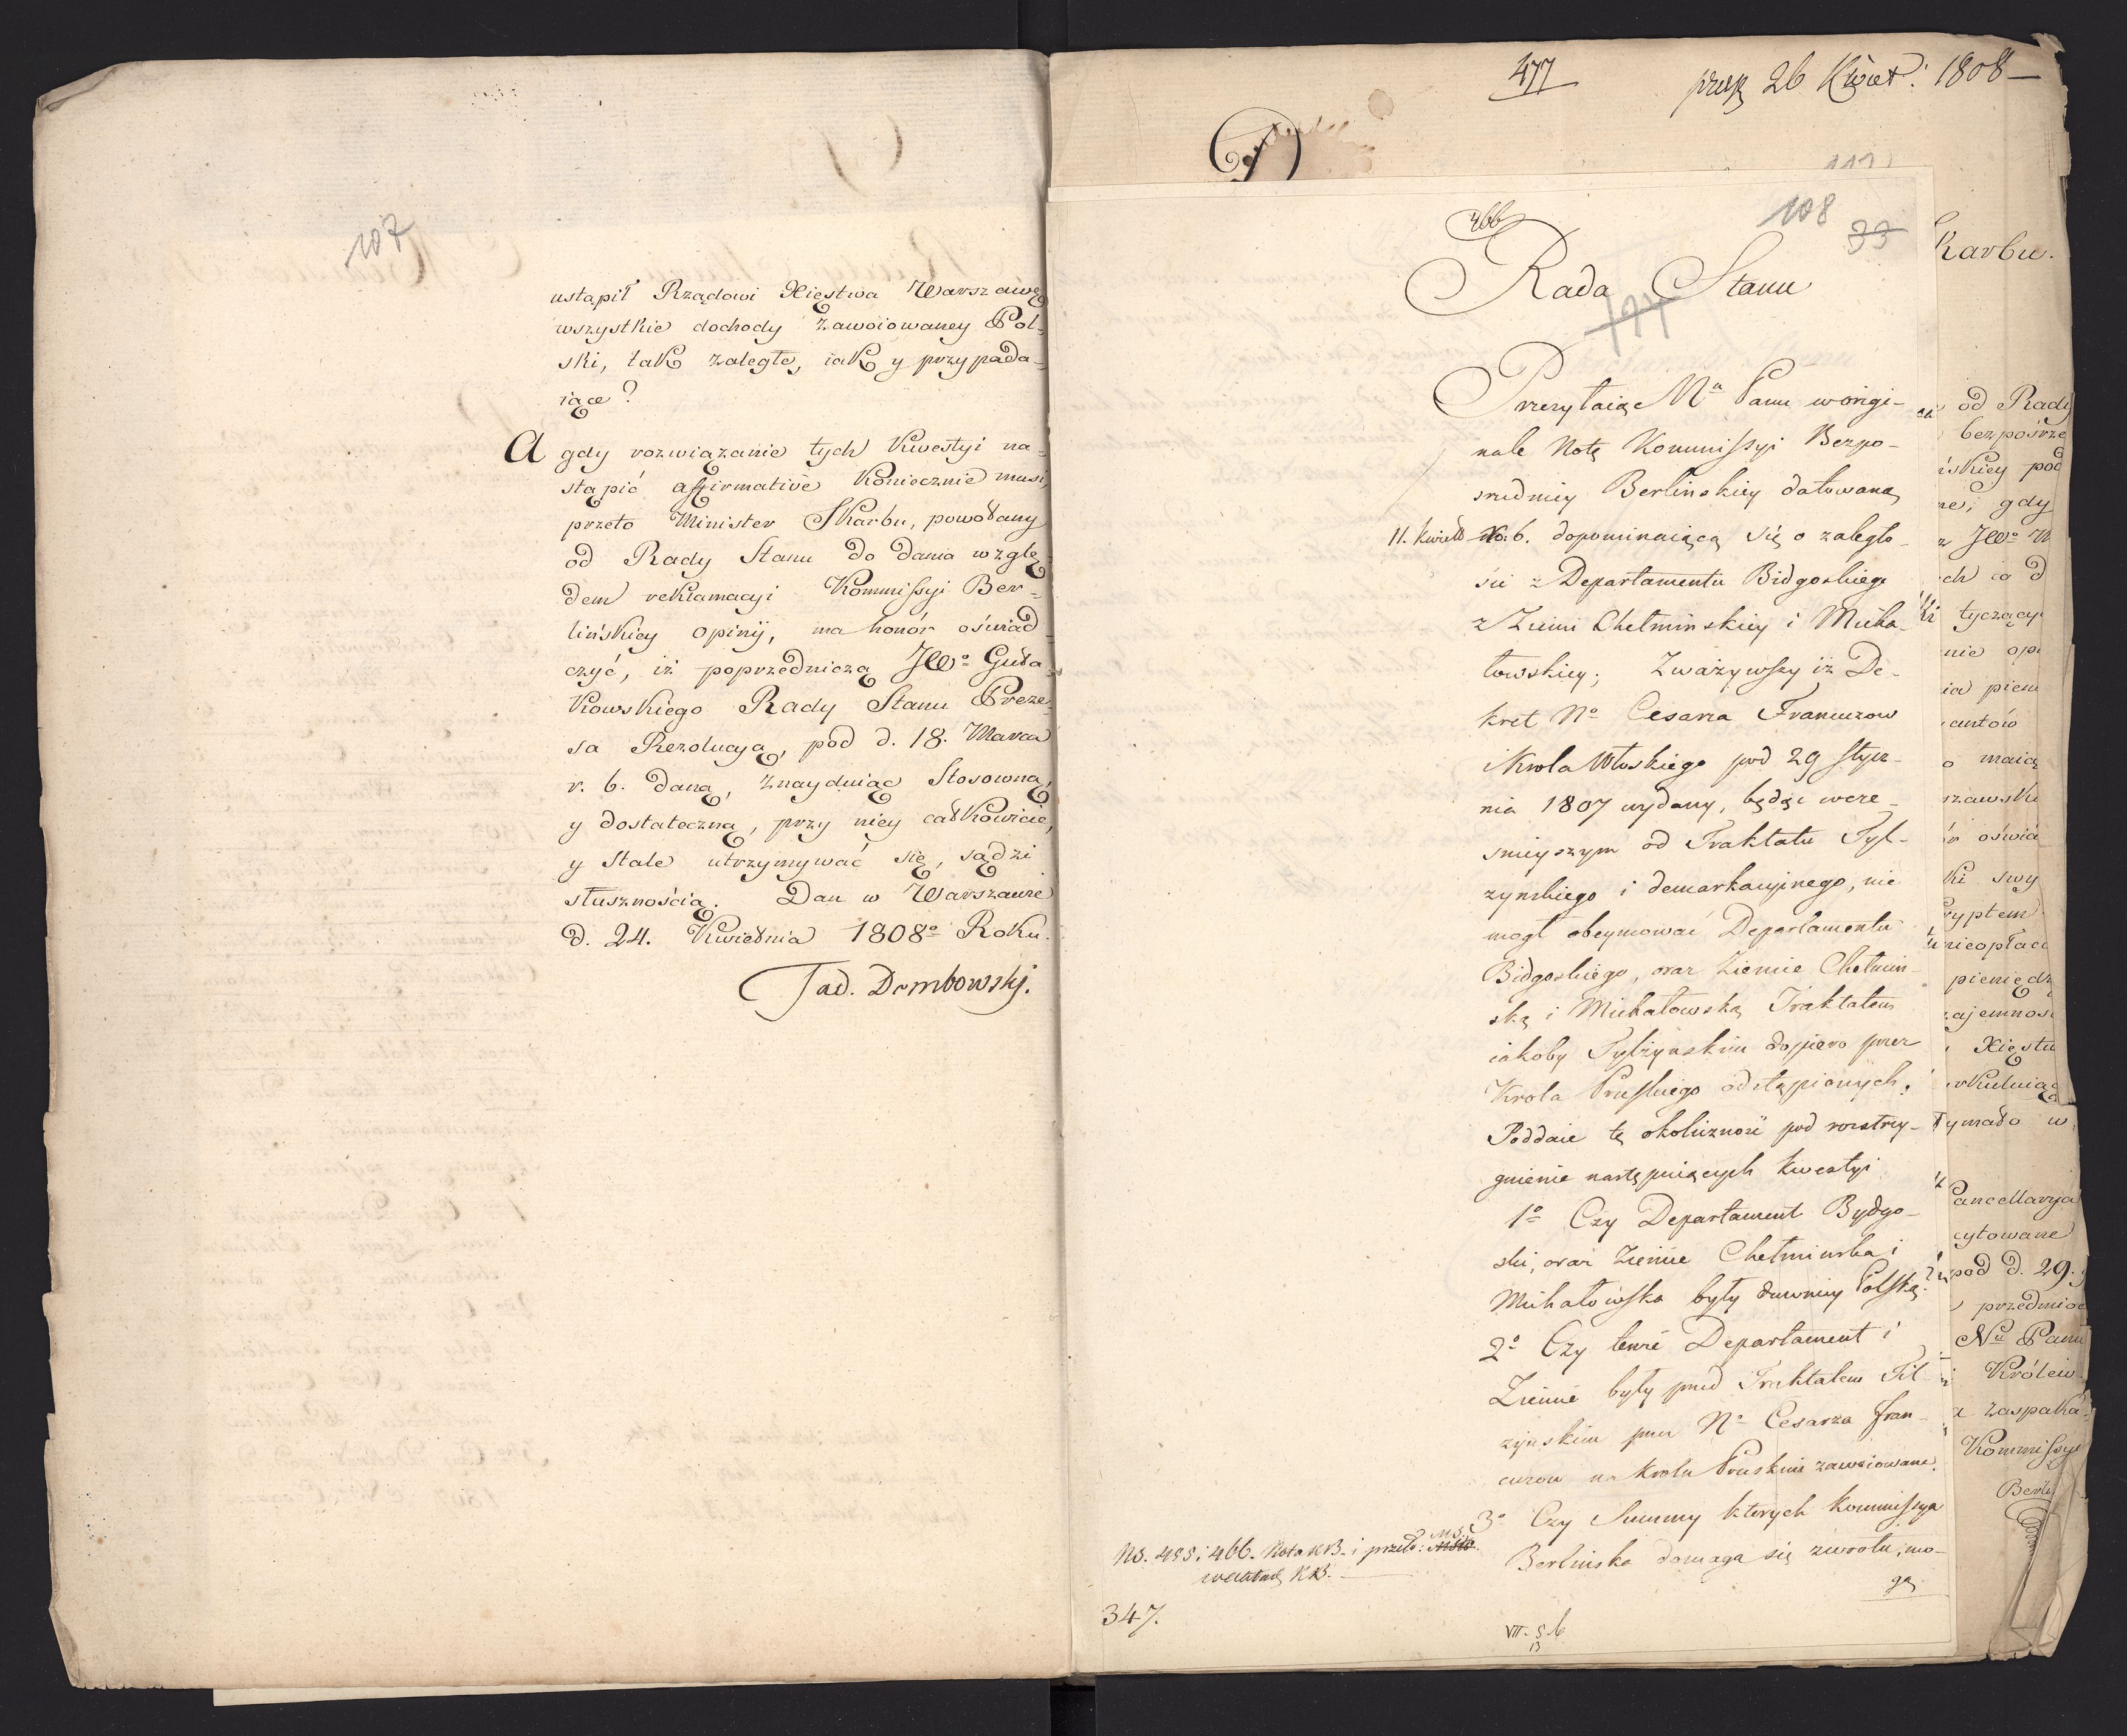 107
ustąpił Rządowi Xięstwa Warszawę
wszystkie dochody zawoiowaney Pol-
ski, tak zaległe, iak y przypada-
iące?
A gdy rozwiązanie tych Kwestyi na-
stąpić affirmative koniecznie musi,
przeto Minister Skarbu, powołany
od Rady Stanu do dania wzglę-
dem reklamacyi Kommissyi Ber-
lińskiey opinij, ma honór oświad-
czyć, iż poprzedniczą JWo Guta-
kowskiego Rady Stanu Preze-
sa Rezolucyą, pod d. 18. Marca
r. b. daną, znayduiąc stosowną,
y dostateczną, przy niey całkowicie,
y stale utrzymywać się, sądzi
słusznością. Dan w Warszawie
d. 24. Kwietnia 1808o Roku.
Tad. Dembowskj.
477
26 Kwiet: 1808
466
108
33
Rada Stanu
Przesyłaiąc Mu Panu w origi-
nale Notę Kommissyi Bezpo-
sredniey Berlinskiey datowaną
11. Kwiet r. b. dopominaiącą się o zaległo-
sci z Departamentu Bidgoskiego
z Ziemi Chełminskiey i Micha-
łowskiey; Zważywszy iż De-
kret No Cesarza Francuzow
i Krola Włoskiego pod 29 stycz-
nia 1807 wydany, będąc wcze-
snieyszym od Traktatu Tyl-
zynskiego i demarkacyinego, nie
mogł obeymować Departamentu
Bidgoskiego, oraz Ziemie Chełmin-
ską i Michałowską Traktatem
iakoby Tylzynskim dopiero przez
Krola Pruskiego odstąpionych;
Poddaie tę okoliczność pod rozstrzy-
gnienie następuiących kwestyi
1o Czy Departament Bydgo-
ski, oraz Ziemie Chełminska i
Michałowska były dawniey Polską?
2o Czy tenże Departament i
Ziemie były przed Traktatem Til-
zynskim przez No Cesarza Fran-
cuzow na Krolu Pruskim zawoiowane.
3o Czy Summy ktorych Kommissya
Berlinska domaga się zwrotu, mo-
gą
No. 455 i 466. Nota KB. i
KB.
347.
VII. 5. b
13
Karbu.
od Rady
bezpośrze
ińskiey pod
ne, gdy
z JWo M
ch co d
tyczący
nie opi
ia pien
antów
o maią
szawski
ór oświa
ki swy
ryptem
nieopłac
pieniędz
zajemnoś
Xięstw
rkuluiąc
ymało w
Cancellarya
cytowane
pod d. 29.
przedmio
Nu Panu
Królew
a zaspaka-
Kommissye
Berli